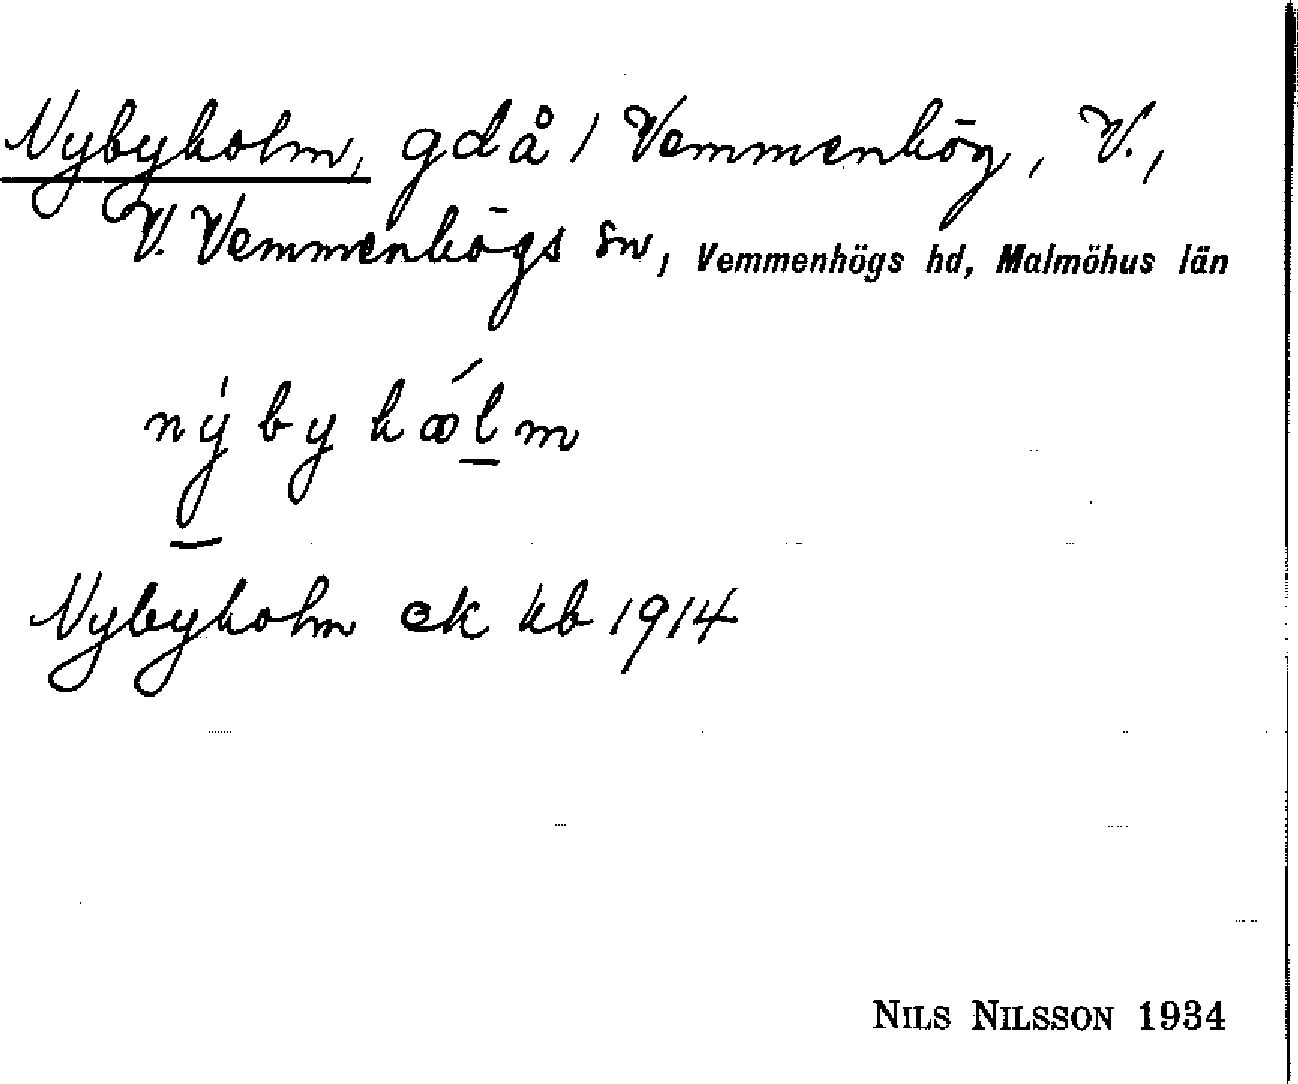 Nybyholm, gd å 1 Vemmenhög, V.,
V. Vemmenhögs sn, Vemmenhögs hd, Malmöhus län
nýby hǻlm
Nybyholm ek kb 1914
NILS NILSSON 1934